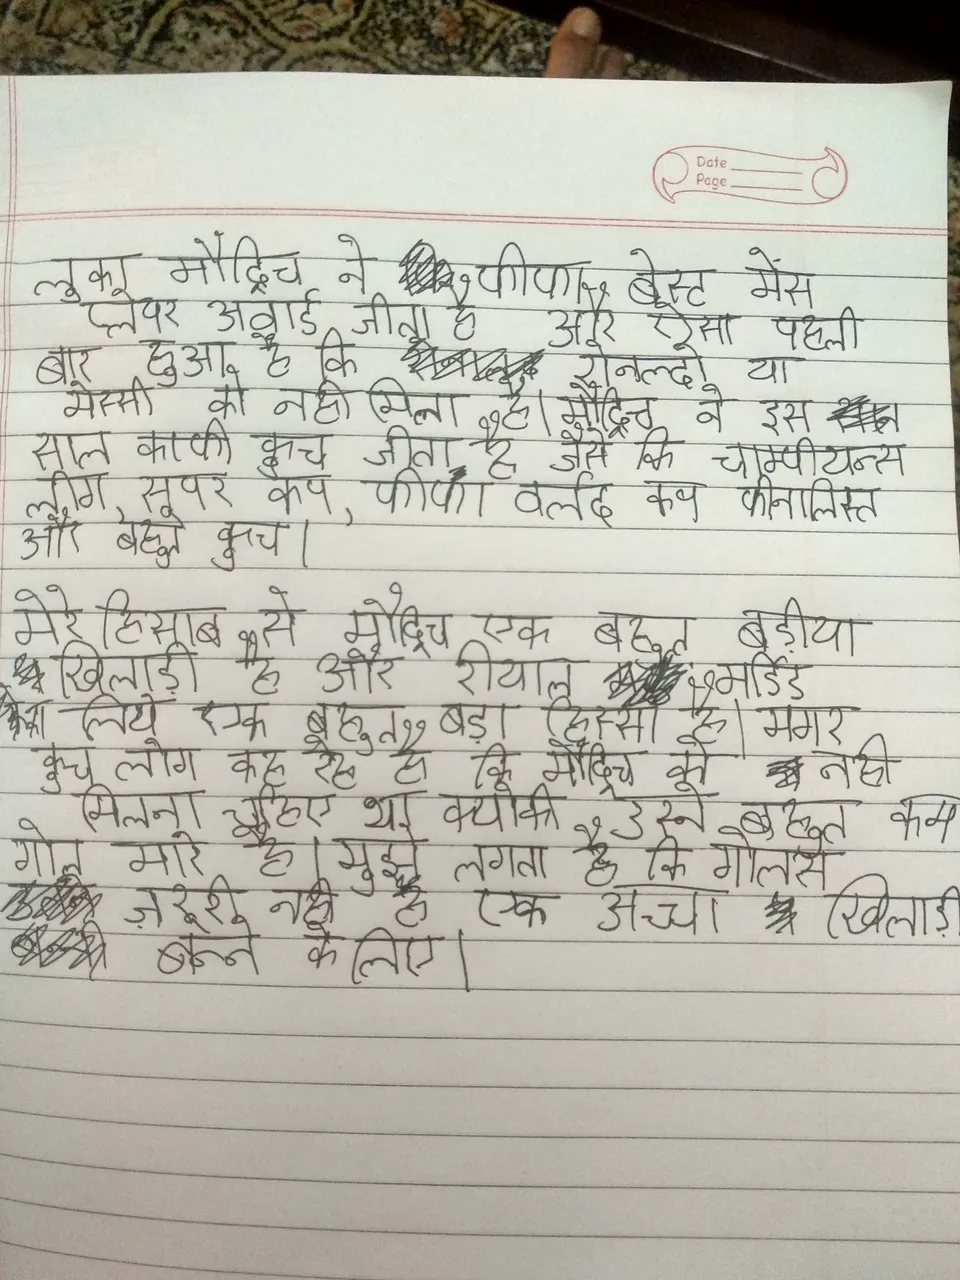 Date
Page
लुका मौद्रिच ने फीफा बेस्ट मेंस
प्लेयर अवार्ड जीता है और ऐसा पहली
बार हुआ है कि रोनल्दो या
मेस्सी को नही मिला है। मौद्रिच ने इस
साल काफी कुच जीता है जैसे कि चाम्पीयन्स
लीग, सूपर कप, फीफा वर्लद कप फीनालिस्त
और बहुत कुच।
मेरे हिसाब से मौद्रिच एक बहुत बड़ीया
खिलाड़ी है और रीयाल मर्डिड
लिये एक बहुत बड़ा हिस्सा है। मगर
कुच लोग कह रहे है कि मौद्रिच को नही
मिलना चहिए था क्योकी उस्ने बहुत कम
गोल मारे है। मुझे लगता है कि गोलस
ज़रूरी नही है एक अच्चा खिलाड़ी
बन्ने के लिए।